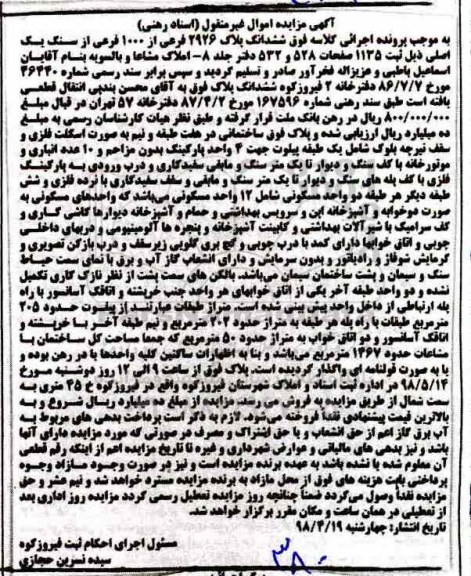 آگهی مزایده اموال غیرمنقول (اسناد رهنی)
به موجب پرونده اجرائی کلاسه فوق ششدانگ پلاک ۲۹۲۶ فرعی از ۱۰۰۰ فرعی از سنگ یک
اصلی ذیل ثبت ۱۱۳۵ صفحات ۵۲۸ و ۵۳۲ دفتر جلد ۸- املاک مشاعا و بالسویه بنام آقایان
اسماعیل باطبی و عزیزاله فخرآور صادر و تسلیم گردید و سپس برابر سند رسمی شماره ۴۶۴۴۰
مورخ ۸۶/۷/۷ دفترخانه ۲ فیروزکوه ششدانگ پلاک فوق به آقای محسن بندپی انتقال قطعی
یافته است طبق سند رهنی شماره ۱۶۷۵۹۶ مورخ ۸۷/۴/۲ دفترخانه ۵۷ تهران در قبال مبلغ
۸۰۰/۰۰۰/۰۰۰ ریال در رهن بانک ملت قرار گرفته و طبق نظر هیات کارشناسان رسمی به مبلغ
ده میلیارد ریال ارزیابی شده و پلاک فوق ساختمانی در هفت طبقه و نیم به صورت اسکلت فلزی و
سقف تیرچه بلوک شامل یک طبقه پیلوت جهت ۴ واحد پارکینگ بدون مزاحم و ۱۰ عدد انباری و
موتورخانه با کف سنگ و دیوار تا یک متر سنگ و مابقی سفیدکاری و درب ورودی به پارکینگ
فلزی با کف پله های سنگ و دیوار تا یک متر سنگ و مابقی و سقف سفیدکاری با نرده فلزی و شش
طبقه دیگر هر طبقه دو واحد مسکونی شامل ۱۲ واحد مسکونی می‌باشد که واحدهای مسکونی به
صورت دوخوابه و آشپزخانه اپن و سرویس بهداشتی و حمام و آشپزخانه دیوارها کاشی کاری و
کف سرامیک با شیرآلات بهداشتی و کابینت آشپزخانه و پنجره ها آلومینیومی و دربهای داخلی
چوبی و اتاق خوابها دارای کمد با درب چوبی و گچ بری گلویی زیرسقف و درب بازکن تصویری و
گرمایش شوفاژ و رادیاتور و بدون سرمایش و دارای انشعاب گاز آب و برق با نمای سمت حیاط
سنگ و سیمان و پشت ساختمان سیمان می‌باشد. بالکن های سمت پشت از نظر نازک کاری تکمیل
نشده و دو واحد طبقه آخر یکی از اتاق خوابهای هر واحد جنب خرپشته و اتاقک آسانسور با راه
پله ارتباطی از داخل واحد پیش بینی شده است. متراژ طبقات عبارتند از پیلوت حدود ۲۰۵
مترمربع طبقات با راه پله هر طبقه به متراژ حدود ۲۰۲ مترمربع و نیم طبقه آخر با خرپشته و
اتاقک آسانسور و دو اتاق خواب به متراژ حدود ۵۰ مترمربع که جمعا مساحت کل ساختمان با
مشاعات حدود ۱۴۶۷ مترمربع می‌باشد و بنا به اظهارات ساکنین کلیه واحدها یا در رهن بوده و
یا به صورت قولنامه ای واگذار گردیده است. پلاک فوق از ساعت ۹ الی ۱۲ روز دوشنبه مورخ
۹۸/۵/۱۴ در اداره ثبت اسناد و املاک شهرستان فیروزکوه واقع در فیروزکوه خ ۴۵ متری به
سمت شمال از طریق مزایده به فروش می‌رسد. مزایده از مبلغ ده میلیارد ریال شروع و به
بالاترین قیمت پیشنهادی نقدا فروخته می‌شود. لازم به ذکر است پرداخت بدهی های مربوط به
آب برق گاز اعم از حق انشعاب و یا حق اشتراک و مصرف در صورتی که مورد مزایده دارای آنها
باشد و نیز بدهی های مالیاتی و عوارض شهرداری و غیره تا تاریخ مزایده اعم از اینکه رقم قطعی
آن معلوم شده یا نشده باشد به عهده برنده مزایده است و نیز در صورت وجود مازاد وجوه
پرداختی بابت هزینه های فوق از محل مازاد به برنده مزایده مسترد خواهد شد و نیم عشر و حق
مزایده نقدا وصول می‌گردد ضمنا چنانچه روز مزایده تعطیل رسمی گردد مزایده روز اداری بعد
از تعطیلی در همان ساعت و مکان مقرر برگزار خواهد شد.
تاریخ انتشار: چهارشنبه ۹۸/۴/۱۹
مسئول اجرای احکام ثبت فیروزکوه
سیده نسرین حجازی